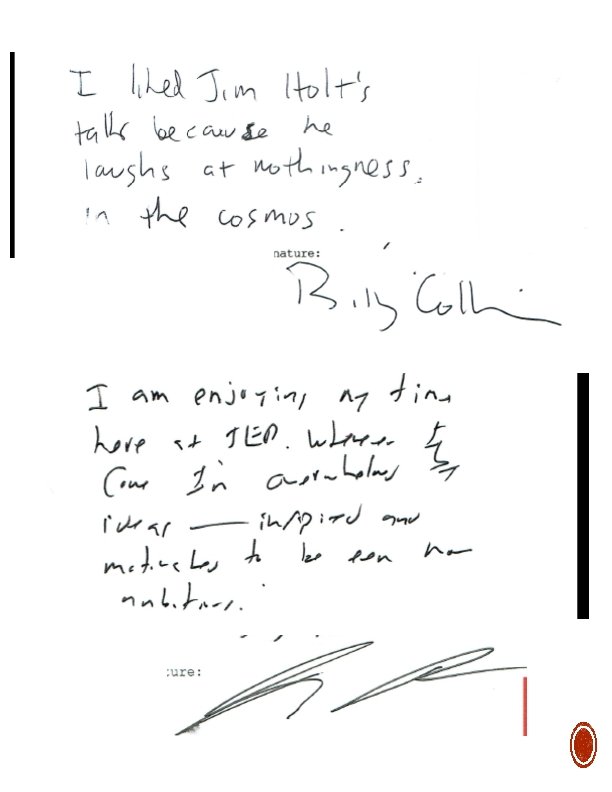 I liked Jim Holt's
talk because he
laughs at nothingness.
in the cosmos.
nature:
Billy Collins
I am enjoying my time
here at TED. Whenever I
come I'm overwhelmed by
ideas — inspired and
motivated to be even more
ambitious.
ure: